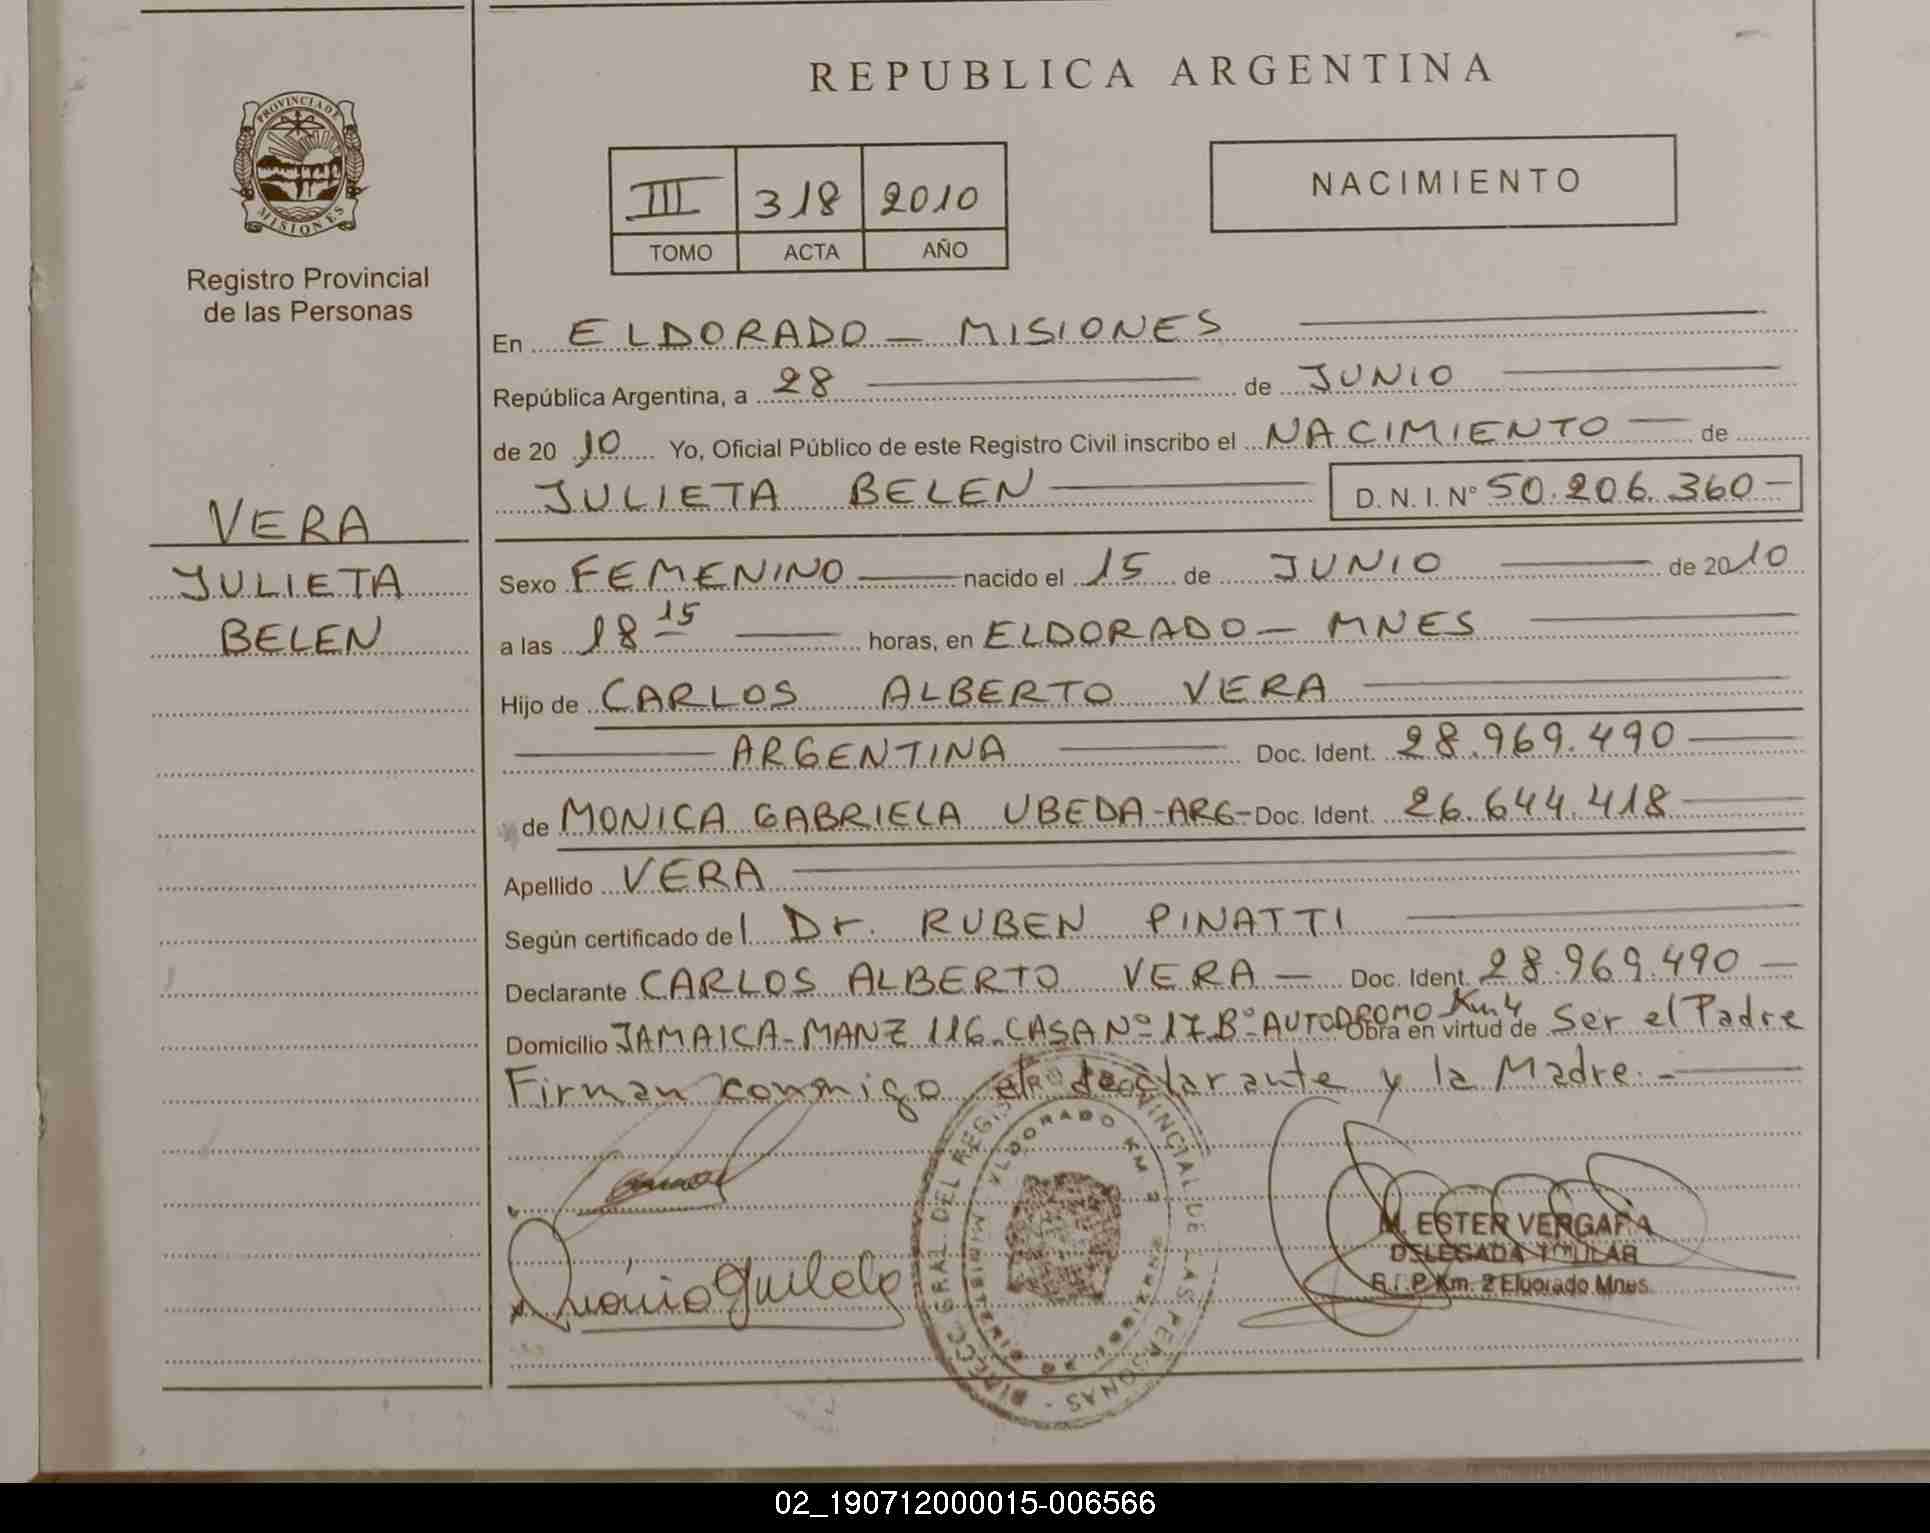 REPUBLICA ARGENTINA
PROVINCIA DE
MISIONES
Registro Provincial
de las Personas
III 318 2010
TOMO ACTA AÑO
NACIMIENTO
VERA
JULIETA
BELEN
En ELDORADO - MISIONES
República Argentina, a 28 de JUNIO
de 2010 Yo, Oficial Público de este Registro Civil inscribo el NACIMIENTO de
JULIETA BELEN D. N. I. N° 50.206.360-
Sexo FEMENINO nacido el 15 de JUNIO de 2010
a las 18 15 horas, en ELDORADO - MNES
Hijo de CARLOS ALBERTO VERA
ARGENTINA Doc. Ident. 28.969.490
de MONICA GABRIELA UBEDA-ARG- Doc. Ident. 26.644.418
Apellido VERA
Según certificado del Dr. RUBEN PINATTI
Declarante CARLOS ALBERTO VERA - Doc. Ident. 28.969.490
Domicilio JAMAICA-MANZ 116-CASA Nº 17 Bº AUTODROMO Km 4 Obra en virtud de Ser el Padre
Firman conmigo el declarante y la Madre.-
DIRECC. GRAL. DEL REGISTRO PROVINCIAL DE LAS PERSONAS
ELDORADO KM 2
M. ESTER VERGARA
DELEGADA TITULAR
R.P.P. Km. 2 Eldorado Mnes.
02_190712000015-006566